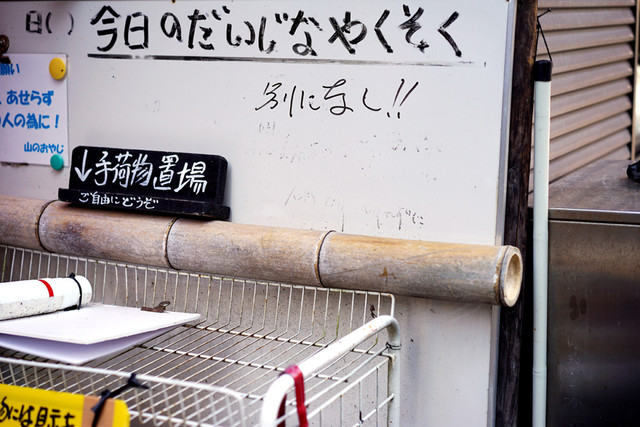 日( )
今日のだいじなやくそく
別になし!!
願い
、あせらず
の人の為に!
山のおやじ
↓手荷物置場
ご自由にどうぞ
には目立